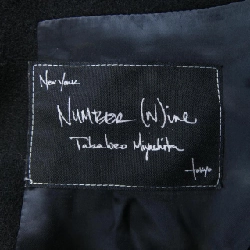 New York
NUMBER (N)ine
Takahiro Miyashita
tokyo